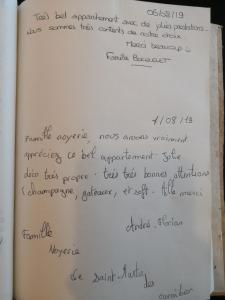 05/08/19
Très bel appartement avec de jolies prestations.
Nous sommes très contents de notre choix.
Merci beaucoup :)
Famille
1/08/19
Famille noyerie, nous avons vraiment
appréciez ce bel appartement. Jolie
déco très propre. très très bonnes attentions
(champagne, gateaux, et soft. Mille merci
André, Florian
Famille
Noyerie
De Saint-Martin
des